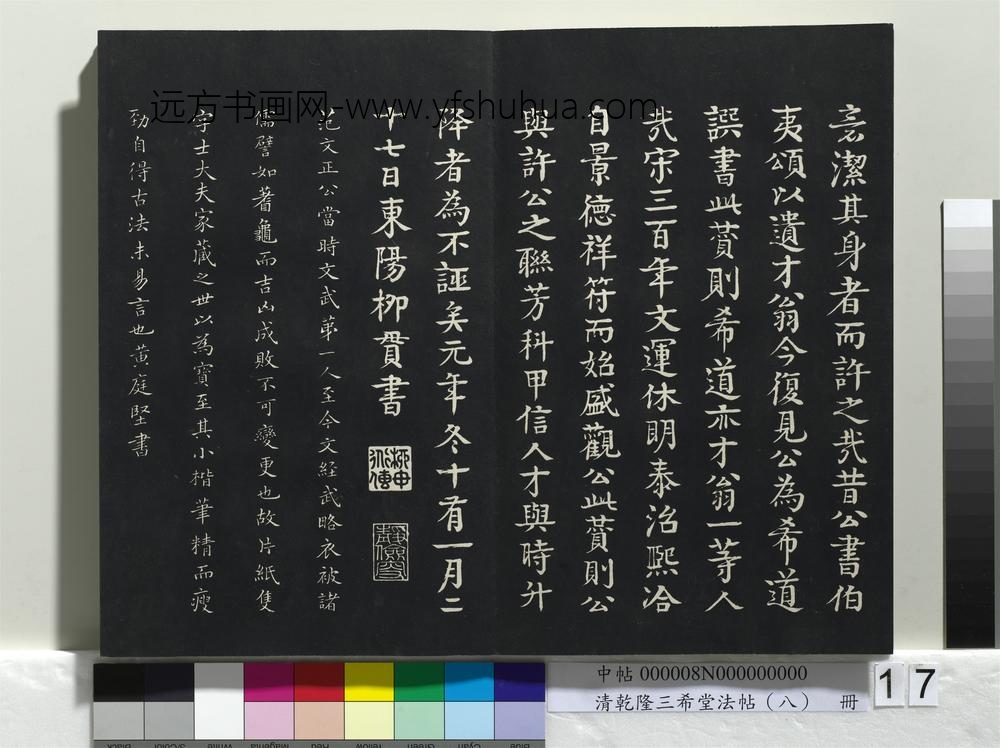 亵潔其身者而許之哉昔公書伯
夷頌以遺才翁今復見公為希道
譔書此贊則希道亦才翁一等人
哉宋三百年文運休明泰治熙洽
自景德祥符而始盛觀公此贊則公
與許公之聯芳科甲信人才與時升
降者為不誣矣元年冬十有一月二
十七日東陽柳貫書
范文正公當時文武第一人至今文經武略衣被諸
儒譬如蓍龜而吉凶成敗不可變更也故片紙隻
字士大夫家藏之世以為寶至其小楷筆精而瘦
勁自得古法未易言也黃庭堅書
远方书画网-www.yfshuhua.com
中帖 000008N000000000
清乾隆三希堂法帖（八） 冊
17
Black
3/Color
White
Magenta
Red
Yellow
Green
Cyan
Blue